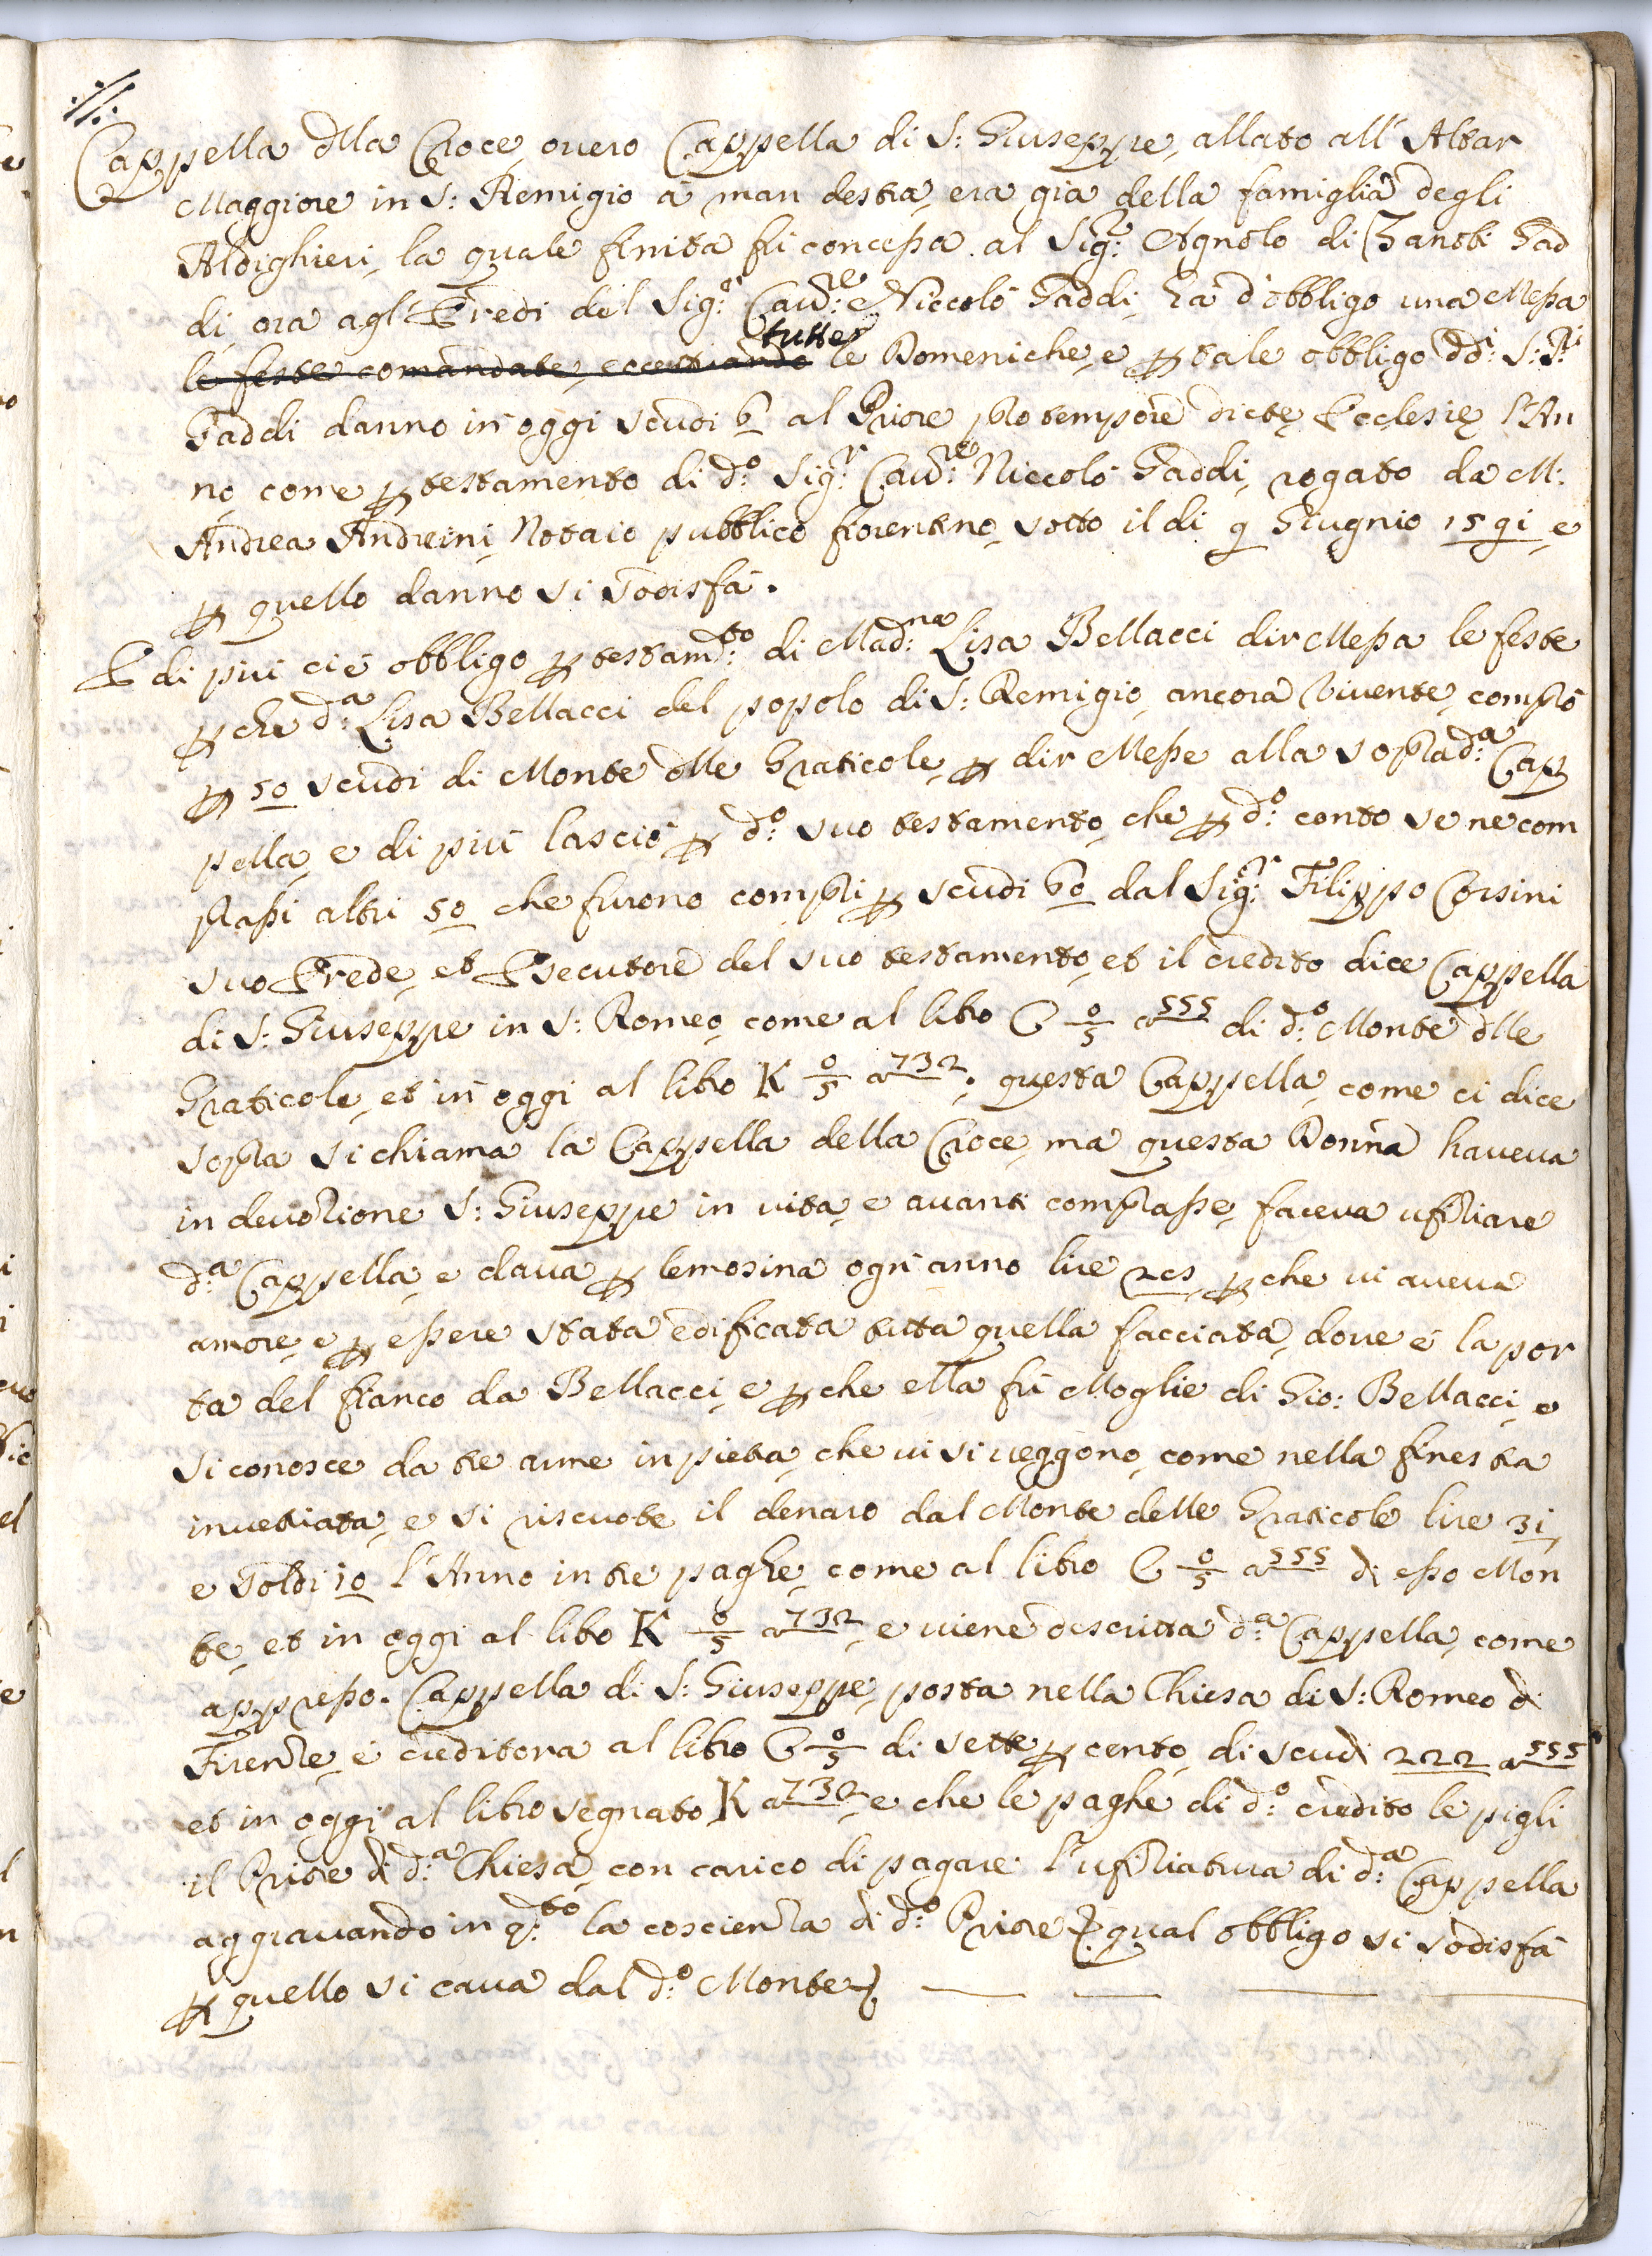 Cappella dlla Croce, overo Cappella di S: Giuseppe, allato all' Altar
Maggiore in S: Remigio à man destra, era già della famiglia degli
Aldighieri, la quale finita fù concessa al Sig.r Agnolo di Zanobi Gad
di, ora agl' Eredi del Sig.r Cav.re Niccolò Gaddi, hà d'obbligo una Messa
le feste comandate, eccettuando tutte le Domeniche, e p tale obbligo dd.i S:ri
Gaddi danno in oggi scudi 6 al Priore pro tempore dictę Ecclesię l'An
no, come p testamento di d.o Sig.r Cav.re Niccolò Gaddi, rogato da M:
Andrea Andreini, Notaio pubblico fiorentino, sotto il di 9 Giugnio 1591, e
p quello danno si sodisfà.
E di più ci è obbligo p testam.to di Mad.na Lisa Bellacci dir Messa le feste
pche d.a Lisa Bellacci del popolo di S: Remigio, ancora vivente, comprò
p 50 scudi di Monte dlle Graticole, p dir Messe alla soprad.a Cap
pella, e di più lasciò p d.o suo testamento, che p d.o conto se ne com
prassi altri 50 che furono compri p scudi 60 dal Sig.r Filippo Corsini
suo Erede, et Esecutore del suo testamento, et il credito dice Cappella
di S: Giuseppe in S: Romeo, come al libro C 0/5 a 555 di d.o Monte dlle
Graticole, et in oggi al libro K 0/5 a 732. questa Cappella, come ci dice
sopra si chiama la Cappella della Croce, ma questa Donna haveva
in devozione S: Giuseppe in vita, e avanti comprasse, faceva ufiziare
d.a Cappella, e dava p lemosina ogn' anno lire 205, pche vi aveva
amore, e p essere stata edificata tutta quella facciata, dove è la por
ta del fianco da Bellacci, e pche ella fù Moglie di Gio: Bellacci, e
si conosce da tre arme in pietra, che vi si veggono, come nella finestra
invetriata, e si riscuote il denaro dal Monte delle Graticole lire 31,
e soldi 10 l'Anno in tre paghe, come al libro C 0/5 a 555 di esso Mon
te, et in oggi al libro K 0/5 a 732, e viene descritta d.a Cappella, come
appresso. Cappella di S: Giuseppe, posta nella Chiesa di S: Romeo di
Firenze, è creditora al libro C 0/5 di sette p cento, di scudi 222 a 555
et in oggi al libro segnato K a 732, e che le paghe di d.o credito le pigli
il Priore di d.a Chiesa, con carico di pagare l'ufiziatura di d.a Cappella
aggravando in q.to la coscienza di d.o Priore {qual obbligo si sodisfà
p quello si cava dal d.o Monte}